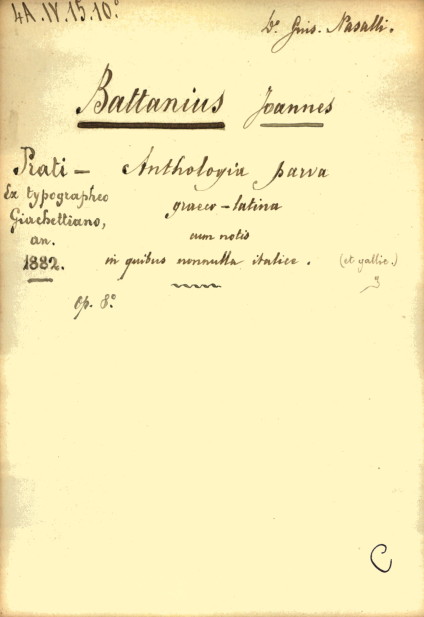 4A.IV.15.10.°
Dr. Gius. Nasalli.
Battanius Joannes
Prati — Anthologia parva
Ex typographeo graeco-latina
Giachettiano, cum notis
an. in quibus nonnulla italice. (et gallic.)
1882.
Op. 8.°
C